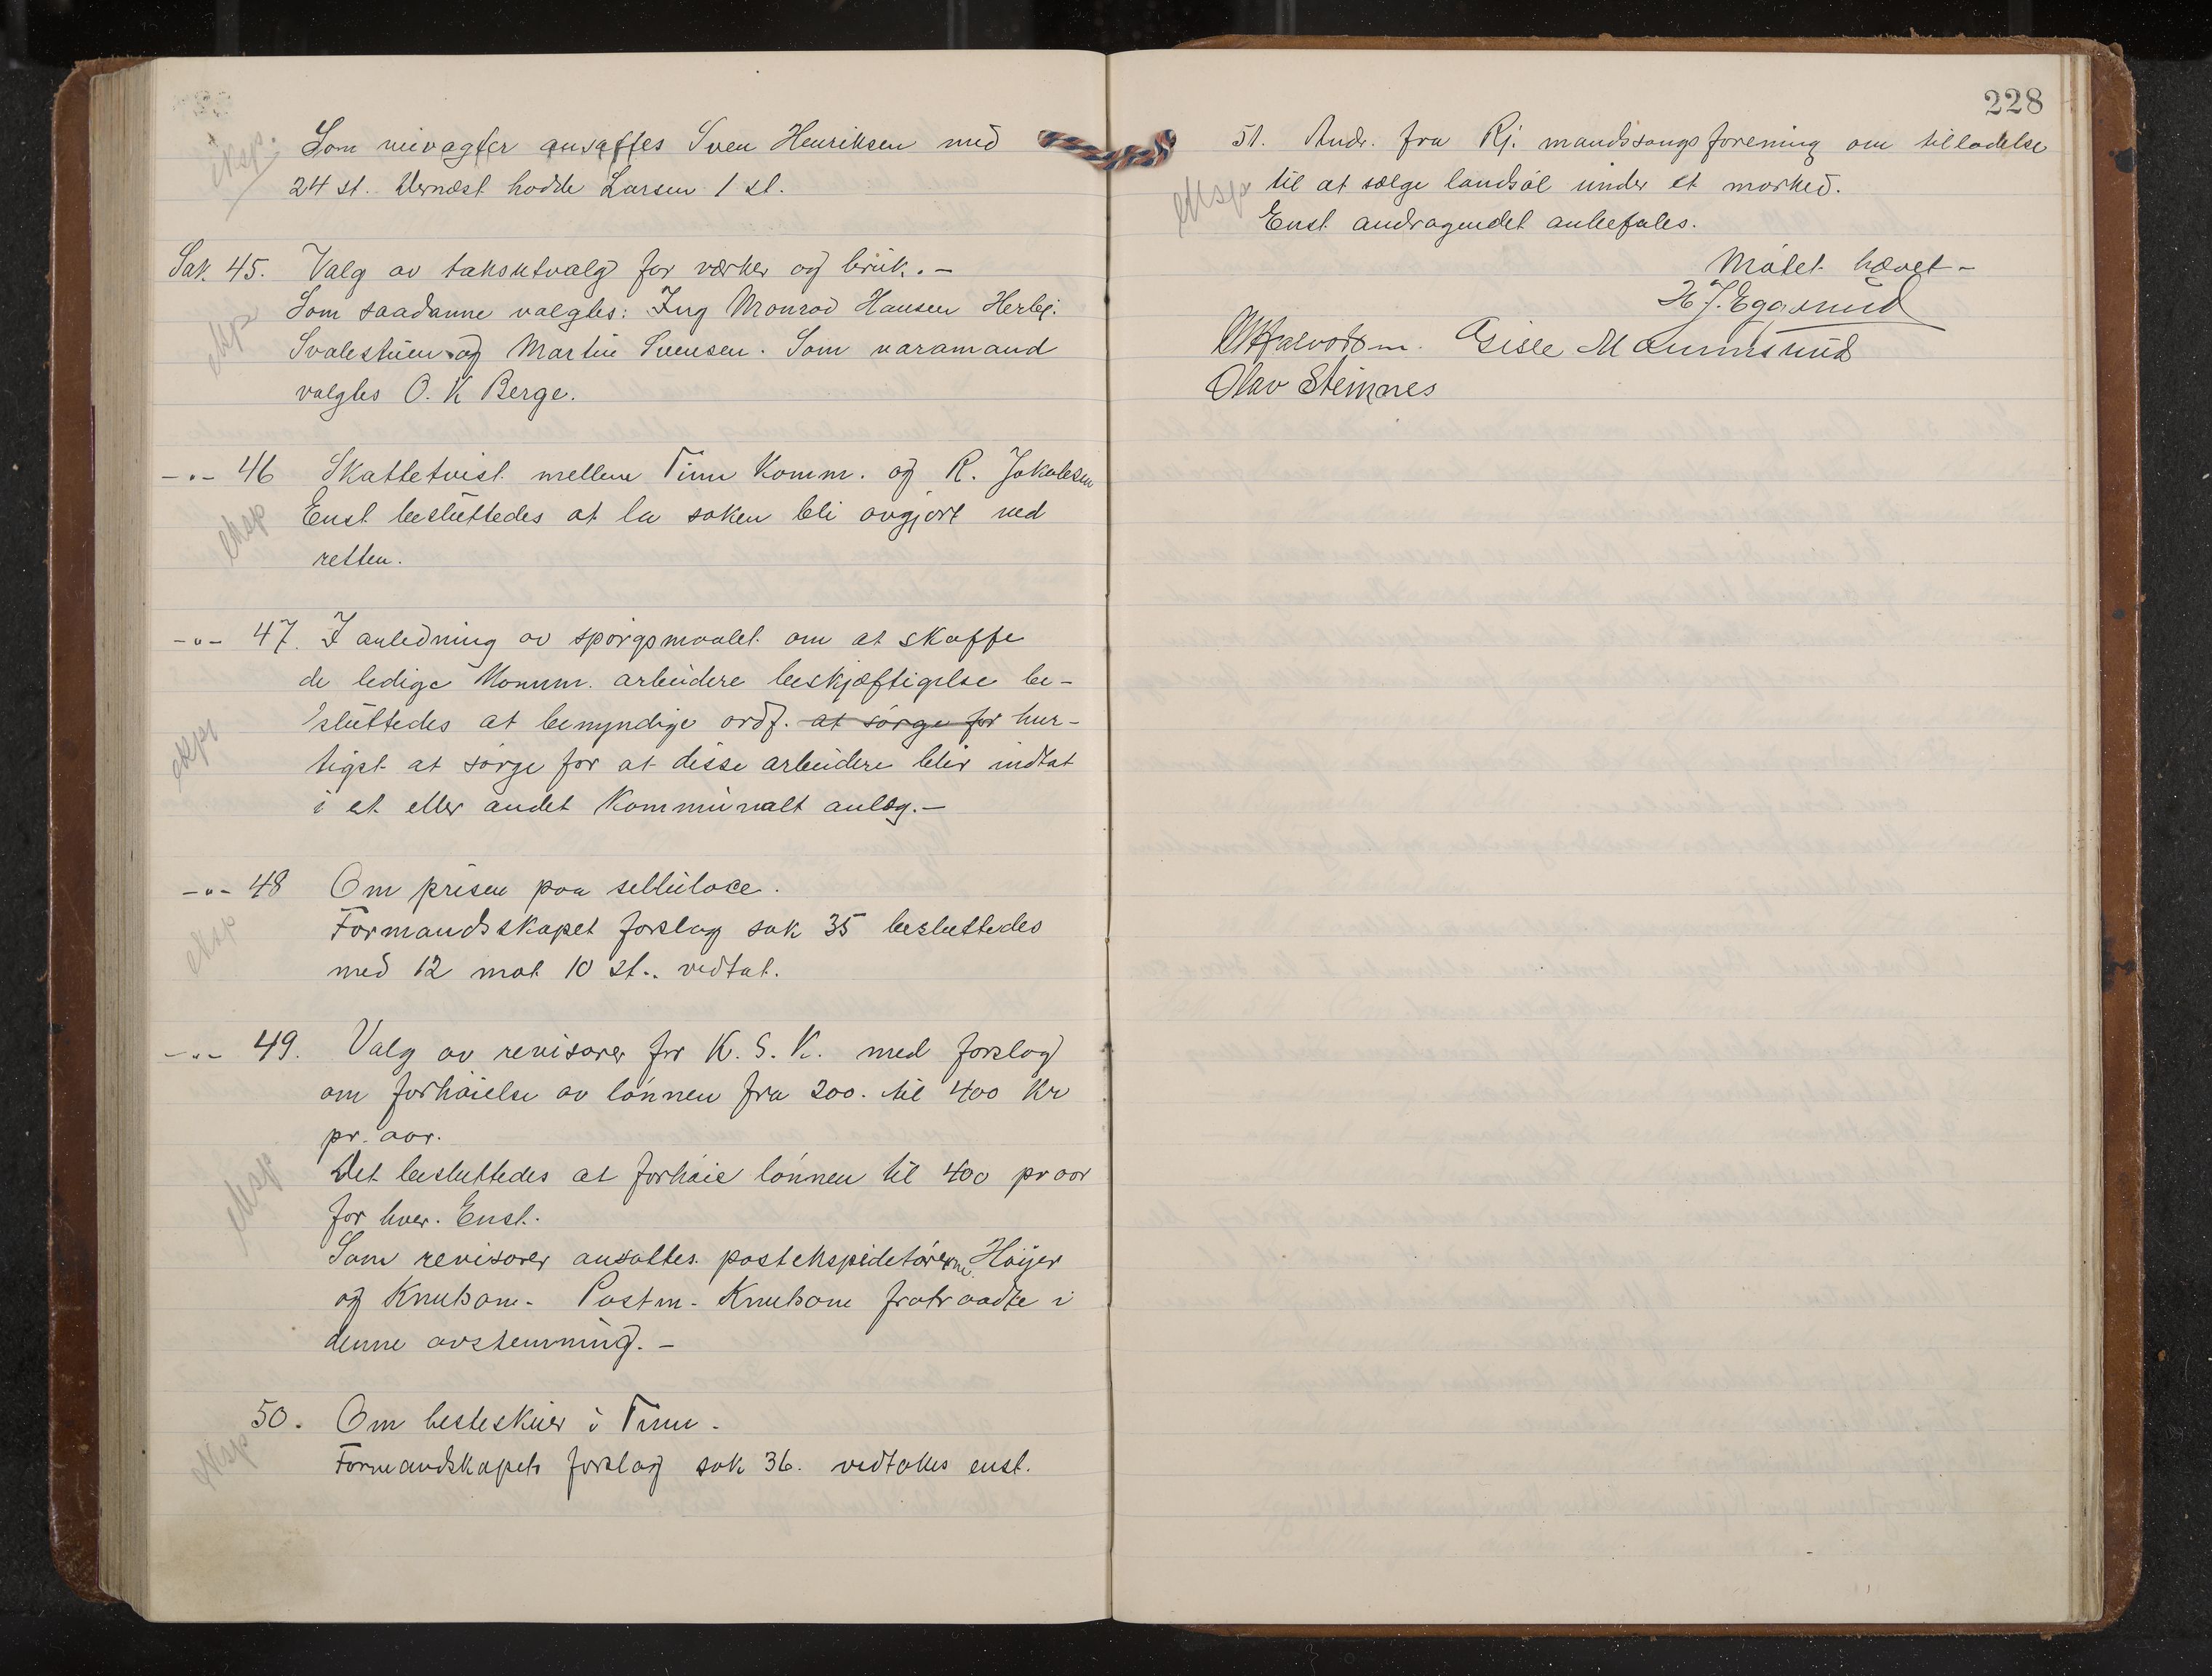 eksp.
Som veivogter ansattes Sven Henriksen med
24 st. Dernæst hadde Larsen 1 st.
Sak 45. Valg av taksutvalg for verker og bruk. —
Som saadanne valgtes: Ing Monrad Hansen Herbj.
eksp
Svalestuen og Martin Svensen. Som varamand
valgtes O. K Berge.
-"- 46 Skattetvist mellem Tinn Komm. og R. Jakobsen
eksp
Enst besluttedes at la saken bli avgjort ved
retten.
-"- 47. I anledning av spørgsmaalet om at skaffe
de ledige Komm. arbeidere beskjæftigelse be-
sluttedes at bemyndige ordf. at sørge for hur-
eksp
tigst at sørge for at disse arbeidere blir indtat
i et eller andet Kommunalt anlæg. —
-"- 48 Om prisen paa selluloce.
eksp
Formandsskapet forslag sak 35 besluttedes
med 12 mot 10 st.. vedtat.
-"- 49. Valg av revisorer for K. S. K. med forslag
om forhøielse av lønnen fra 200. til 400 Kr
pr. aar.
eksp
Det besluttedes at forhøie lønnen til 400 pr aar
for hver. Enst.
Som revisorer ansattes postekspeditørerne Høijer
og Knutsom. Postm. Knutsom fratraadte i
denne avstemning. —
50. Om hesteskuer i Tinn.
eksp
Formandskapets forslag sak 36. vedtokes enst.
228
51. Andr. fra Rj. mandssangsforening om tilladelse
eksp
til at sælge landsøl under et marked.
Enst andragendet anbefales.
Møtet hævet —
H. J. Eggerud
Halvorsen. Gisle Maurisrud
Olav Steinnes